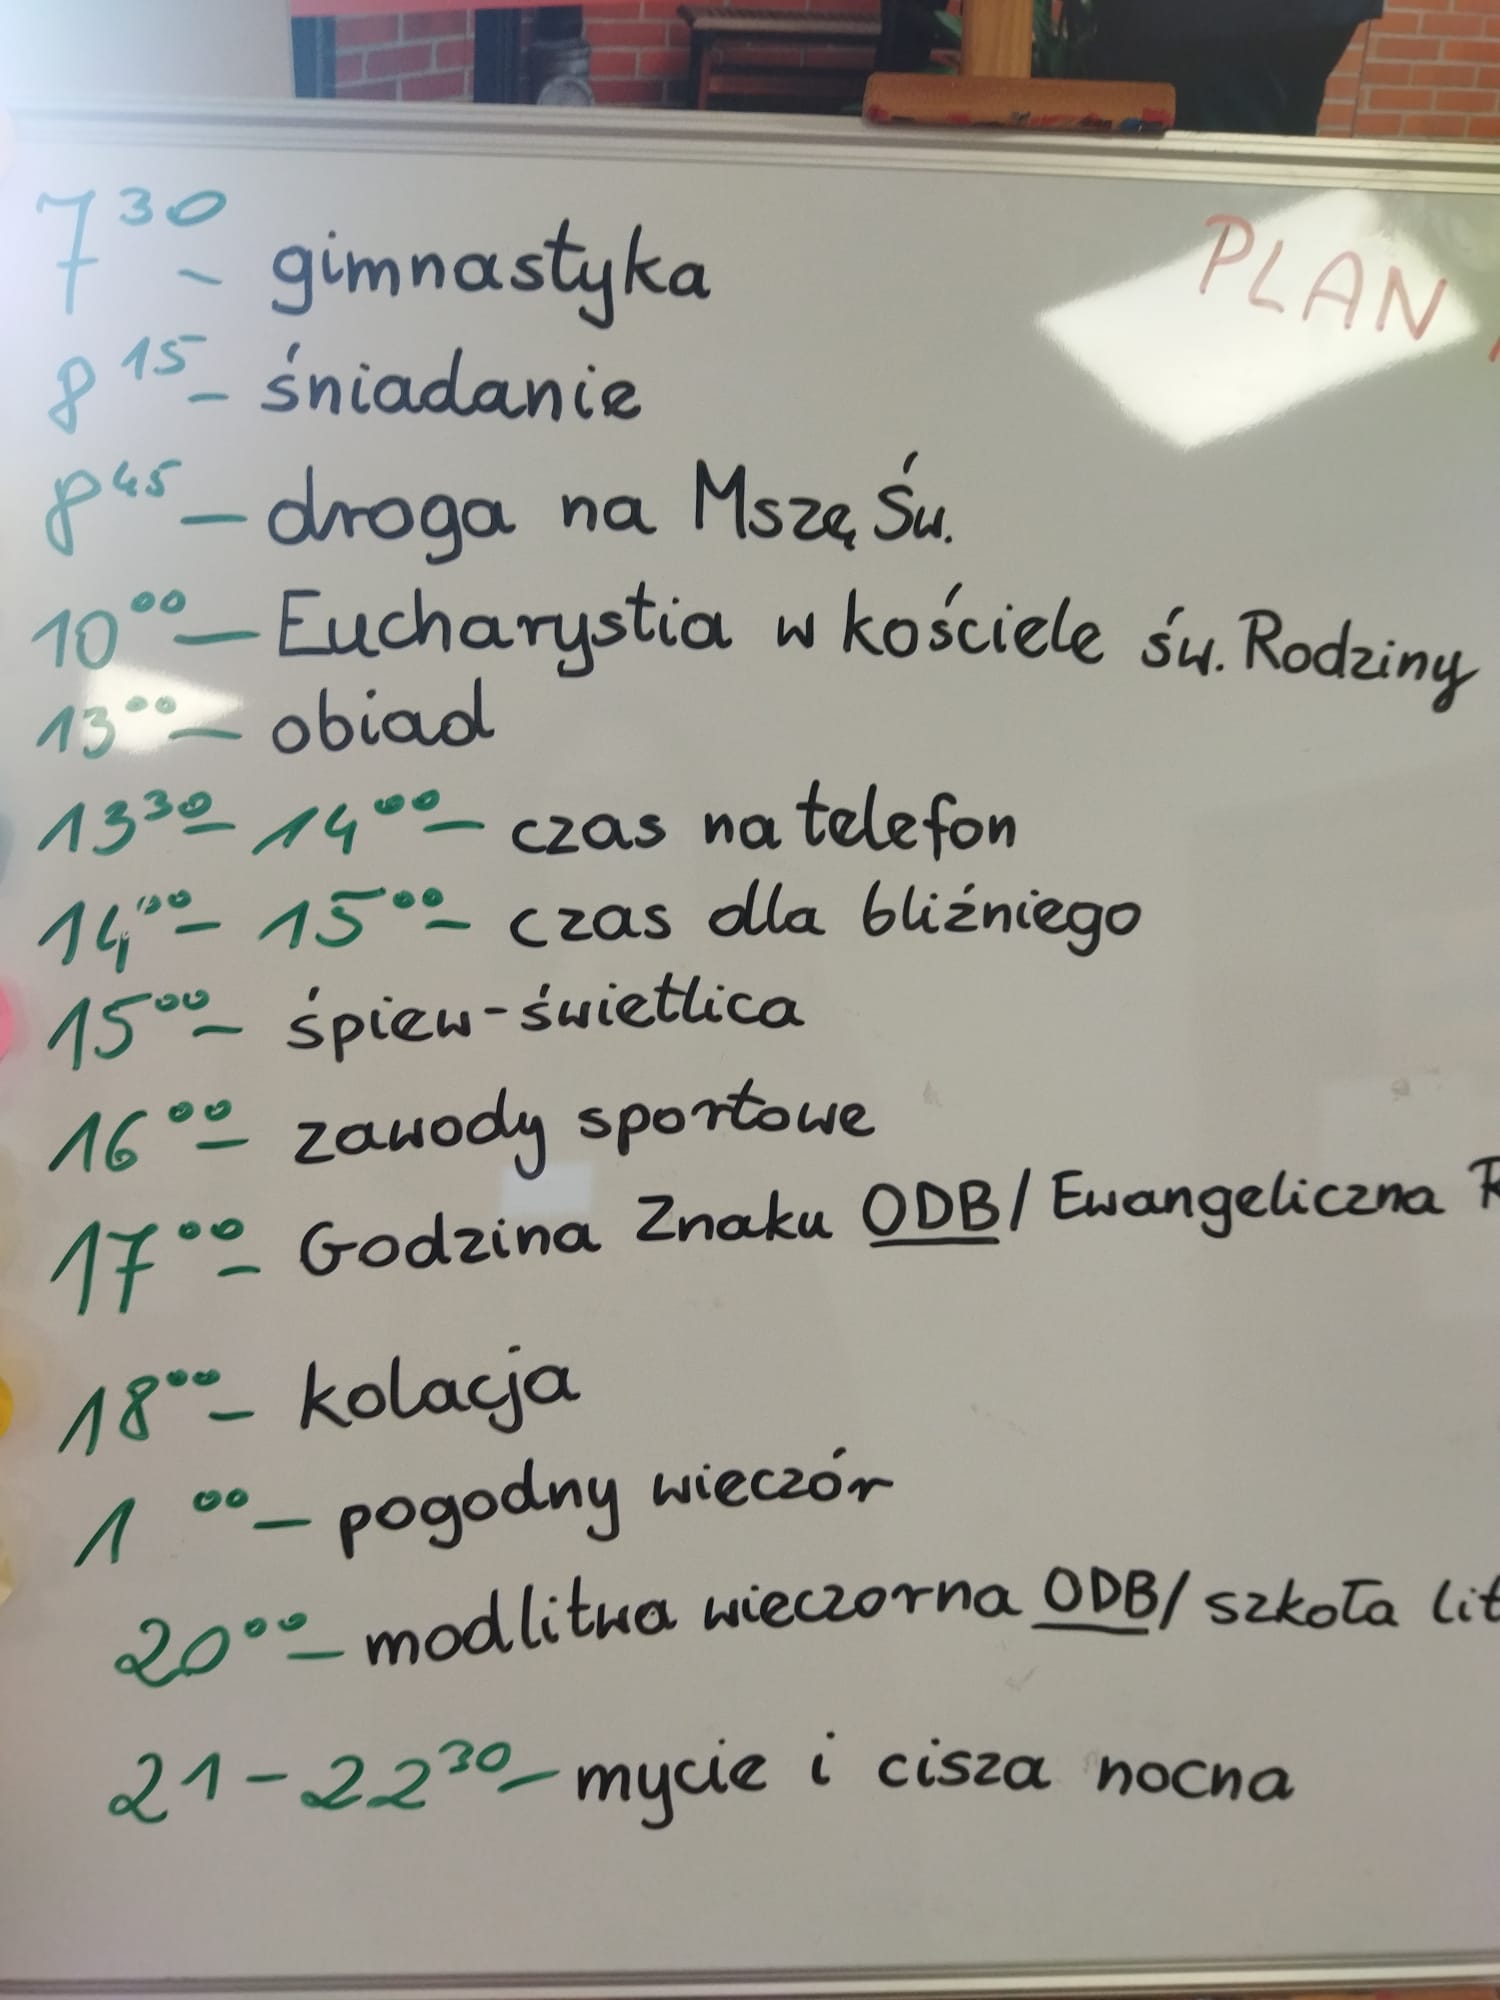 PLAN
7³⁰ - gimnastyka
8¹⁵ - śniadanie
8⁴⁵ - droga na Mszę Św.
10⁰⁰ - Eucharystia w kościele św. Rodziny
13⁰⁰ - obiad
13³⁰ - 14⁰⁰ - czas na telefon
14⁰⁰ - 15⁰⁰ - czas dla bliźniego
15⁰⁰ - śpiew - świetlica
16⁰⁰ - zawody sportowe
17⁰⁰ - Godzina Znaku ODB / Ewangeliczna R
18⁰⁰ - kolacja
1 ⁰⁰ - pogodny wieczór
20⁰⁰ - modlitwa wieczorna ODB / szkoła lit
21 - 22³⁰ - mycie i cisza nocna